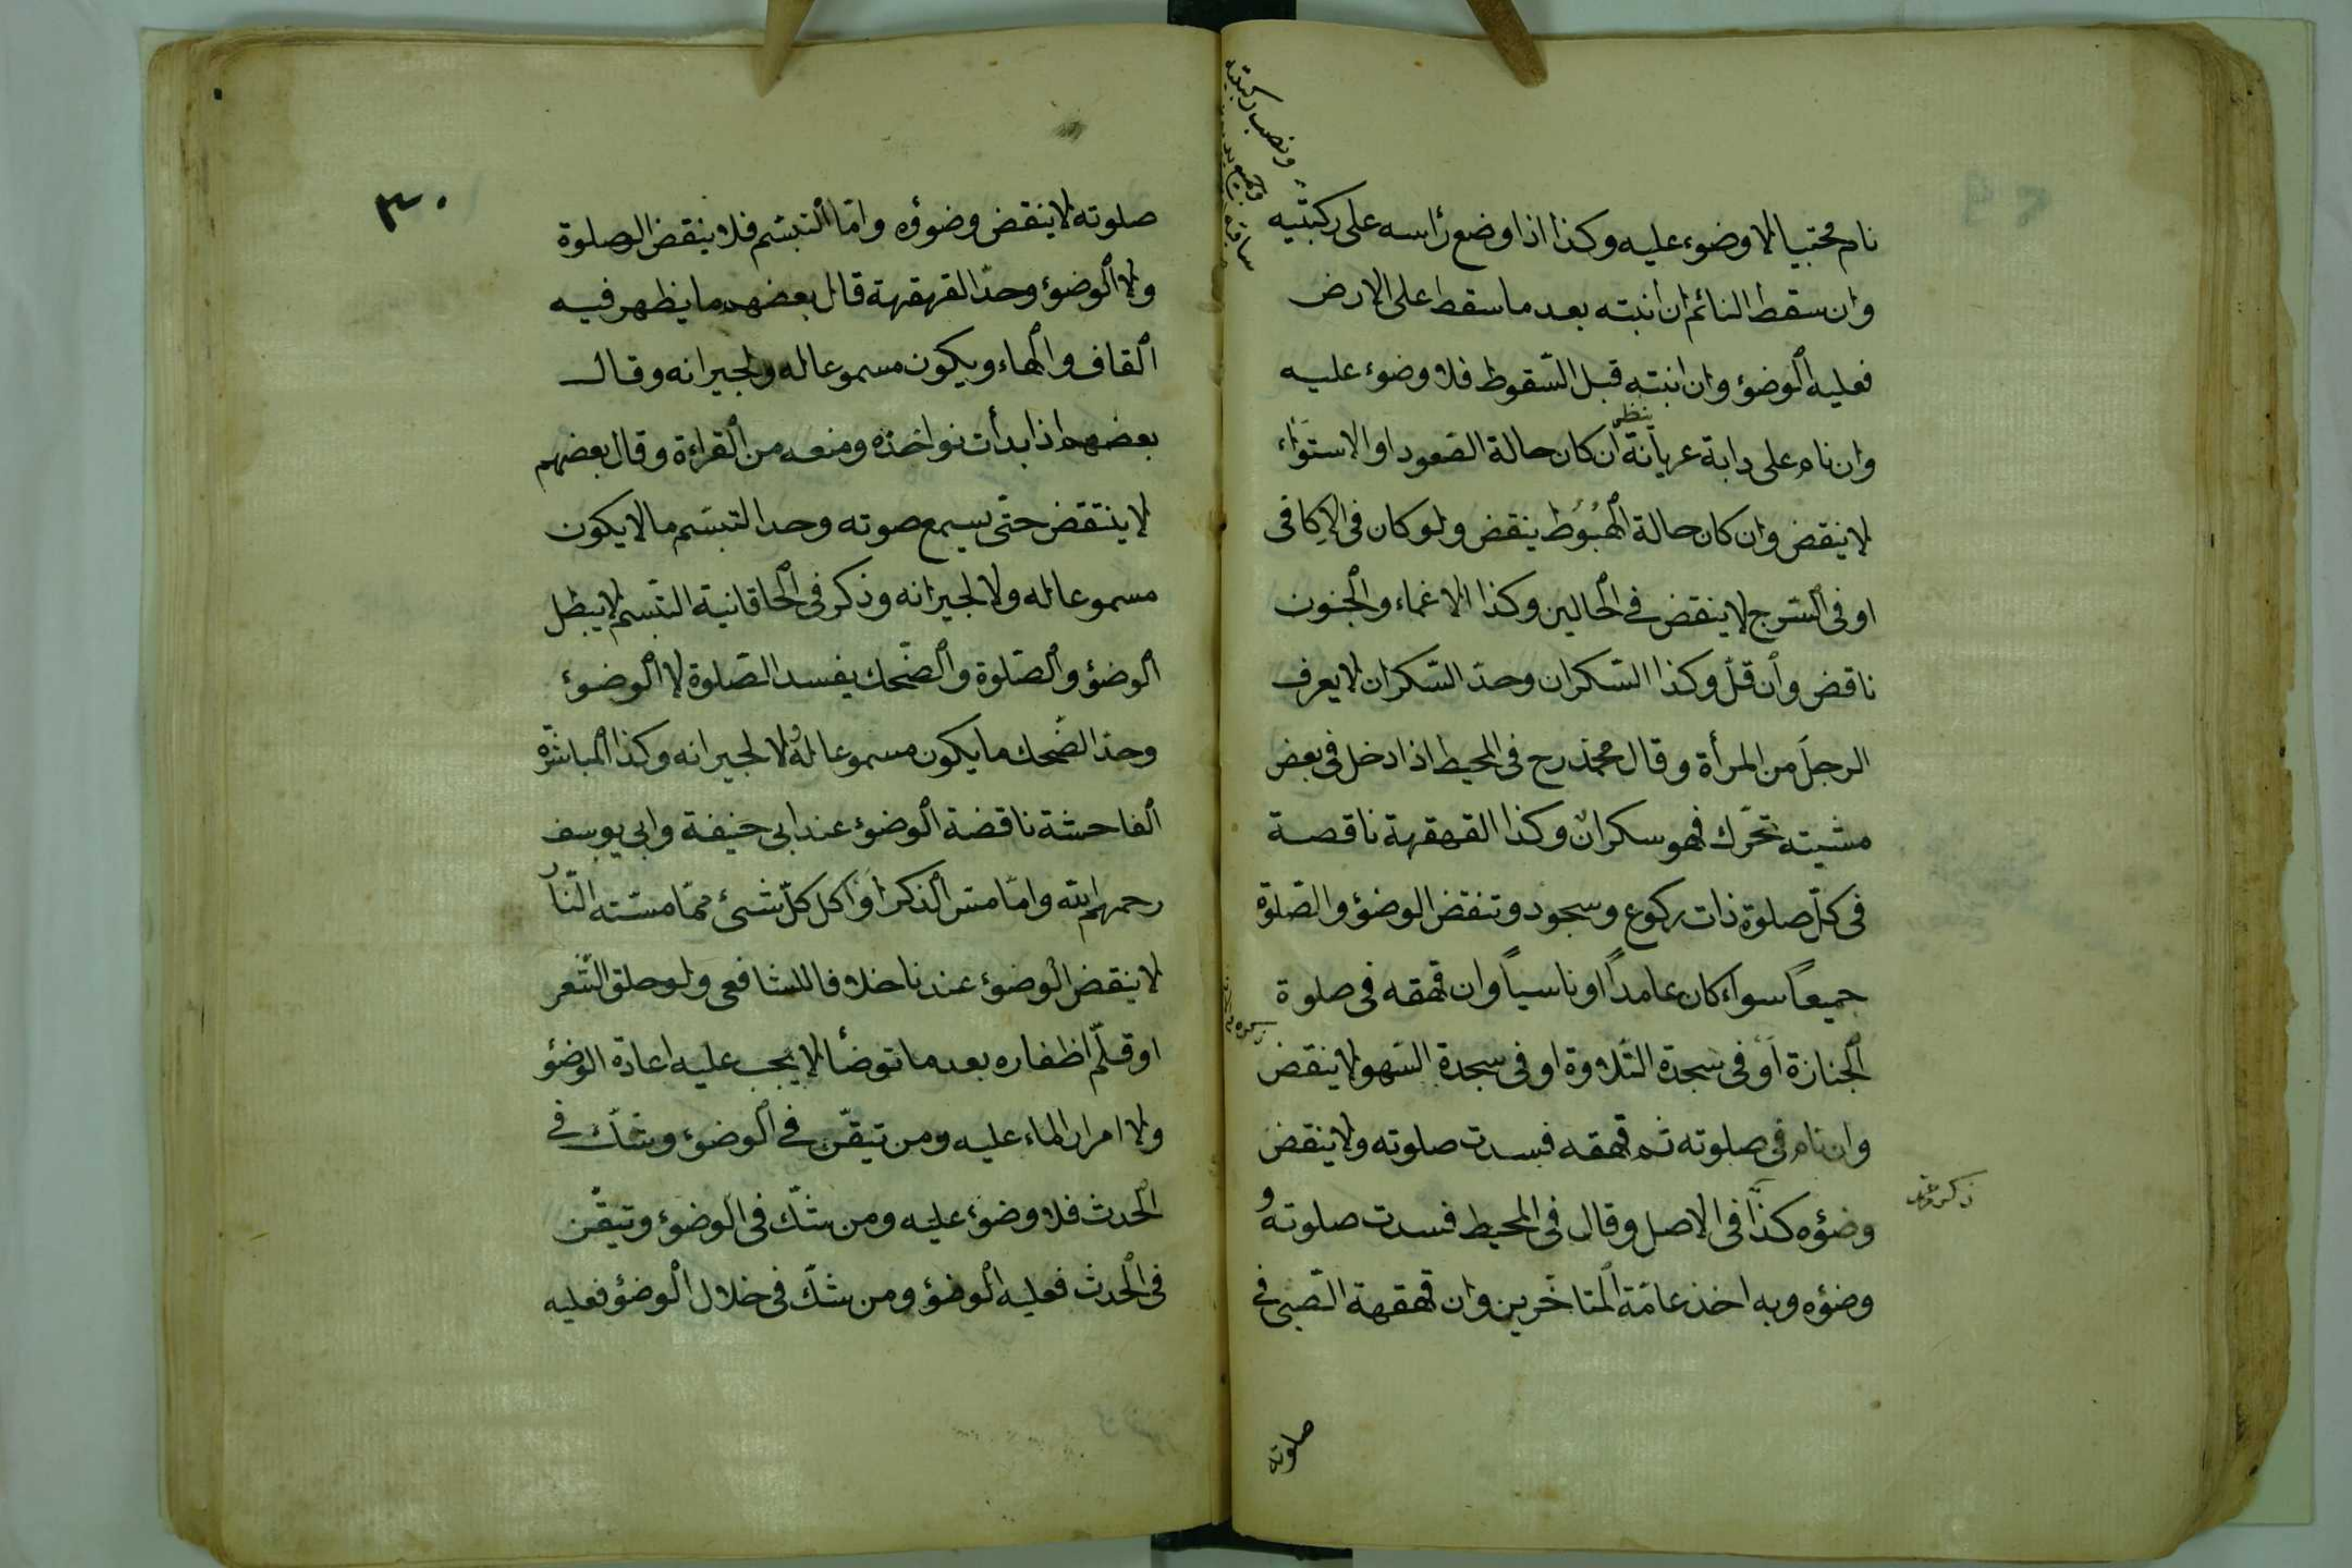 نام محتبيا لا وضوء عليه وكذا اذا وضع رأسه على ركبتيه
وان سقط النائم ان انتبه بعد ما سقط على الارض
فعليه الوضوء وان انتبه قبل السّقوط فلا وضوء عليه
ينظر
وان نام على دابة عريانة ان كان حالة الصّعود او الاستواء
لا ينقض وان كان حالة الهُبُوط ينقض ولو كان فى الاكاف
او فى السّرج لا ينقض فى الحالين وكذا الاغماء والجنون
ناقض وان قلّ وكذا السّكران وحدّ السّكران لا يعرف
الرجل من المرأة وقال محمّد رح فى المحيط اذا دخل فى بعض
مشيته تحرّك فهو سكرانٌ وكذا القهقهة ناقصة
فى كلّ صلوة ذات ركوع وسجود وتنقض الوضوء والصّلوة
جميعًا سواء كان عامدًا او ناسيًا وان قهقه فى صلوة
الجنازة اَوْ فى سجدة التّلاوة او فى سجدة السّهو لا ينقض
وان نام فى صلوته ثم قهقه فسدت صلوته ولا ينقض
وضؤه كذا فى الاصل وقال فى المحيط فسدت صلوتهُ و
وضؤه وبه اخذ عامّة المتأخّرين وان قهقهة الصّبى فى
ونصب ركبتيه
صلوته
٣٠
صلوته لا ينقض وضوؤه وامّا التبسّم فلا ينقض الصلوة
ولا الوضوء وحدّ القهقهة قال بعضهم ما يظهر فيه
القاف والهاء ويكون مسموعا له ولجيرانه وقال
بعضهم اذا بدأت نواخذه ومنعه من القراءة وقال بعضهم
لا ينتقض حتّى يسمع صوته وحد التبسّم ما لا يكون
مسموعا له ولا لجيرانه وذكر فى الخاقانية التبسم لا يبطل
الوضؤ والصّلوة والضّحك يفسد الصّلوة لا الوضوء
وحدّ الضّحك ما يكون مسموعا لهُ لا لجيرانه وكذا المباشرة
الفاحشة ناقضة الوضوء عند ابى حنيفة وابى يوسف
رحمهم الله وامّا مسّ الذكر اَوْ اكل كلّ شىئ ممّا مسّته النّار
لا ينقض الوضوء عندنا خلافا للشافعى ولو حلق الشّعر
او قلّم اظفاره بعد ما توضأ لا يجب عليه اعادة الوضؤ
ولا امرار الماء عليه ومن تيقّن فى الوضوء وشكّ فى
الحدث فلا وضوء عليه ومن شكّ فى الوضوء وتيقّن
فى الحدث فعليه الوضؤ ومن شكّ فى خلال الوضؤ فعليه